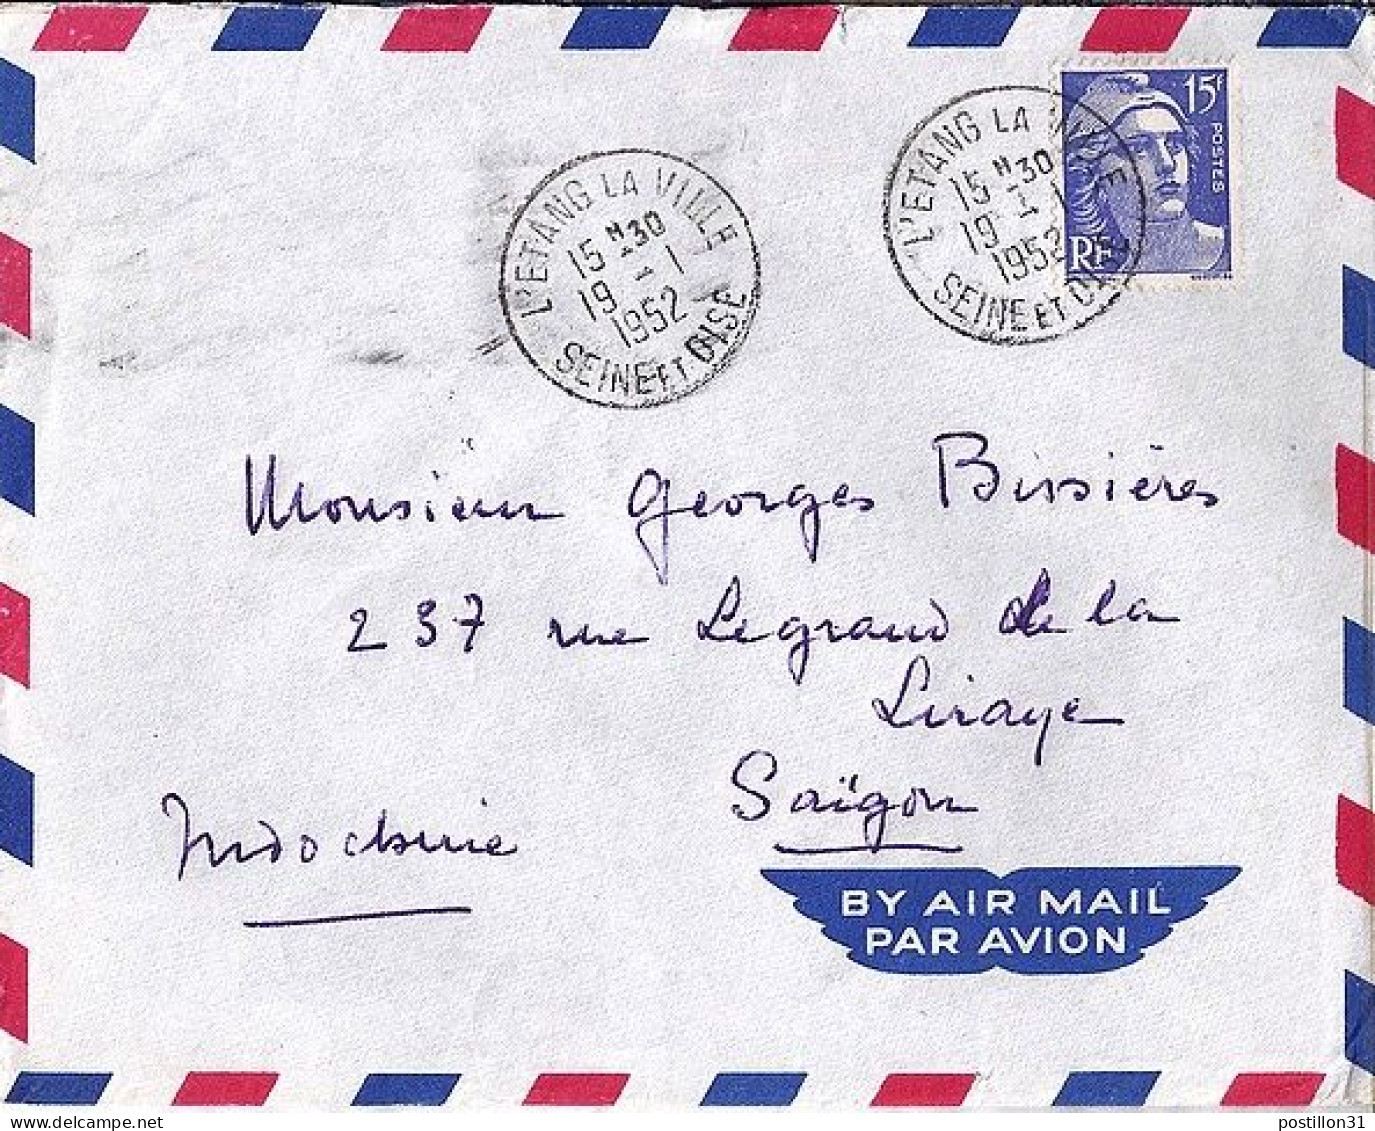 15F
POSTES
RF
L'ETANG LA VILLE
15 H 30
19 - 1
1952
SEINE ET OISE
L'ETANG LA VILLE
15 H 30
19 - 1
1952
SEINE ET OISE
Monsieur Georges Bissières
237 rue Legrand de la
Liraye
Saïgon
Indochine
BY AIR MAIL
PAR AVION
www.delcampe.net
postillon31